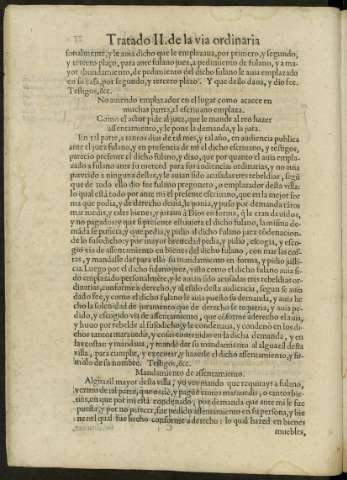 Tratado II. de la via ordinaria
sonalmente, y le auia dicho que le emplazaua, por primero, y segundo,
y tercero plazo, para ante fulano juez, a pedimento de fulano, y a ma
yor abundamiento, de pedimiento del dicho fulano le auia emplazado
en su casa, por segundo, y tercero plazo. Y que dello daua, y dio fee.
Testigos, &c.
No auiendo emplazador en el lugar como acaece en
muchas partes, el escriuano emplaza.
Como el actor pide al juez, que le mande al reo hazer
assentamiento, y le pone la demanda, y la jura.
En tal parte, a tantos dias de tal mes, y tal año, en audiencia publica
ante el juez fulano, y en presencia de mi el dicho escriuano, y testigos,
parecio presente el dicho fulano, y dixo, que por quanto el auia empla
zado a fulano ante su merced para sus audiencias ordinarias, y no auia
parecido a ninguna dellas, y le auian sido acusadas tres rebeldias, segũ
que de todo ello dio fee fulano pregonero, o emplazador desta villa:
lo qual esta todo por ante mi el presente escriuano, que en la mejor for
ma que podia, y de derecho deuia, le ponia, y puso por demanda tãtos
marauedis, y tales bienes, y juraua a Dios en forma, q̃ le eran deuidos,
y no pagados: y que si presente estuuiera el dicho fulano, la misma de-
mãda se pusiera, y que pedia, y pidio al dicho fulano juez cõdenacion
de lo susodicho: y por mayor
gos via de assentamiento en bienes del dicho fulano, con mas las cos-
tas, y mandasse dar para ello su mandamiento en forma, y pidio justi-
cia. Luego por el dicho fulano juez, visto como el dicho fulano auia si
do emplazado personalmẽte, y le auian sido acusadas tres rebeldias or
dinarias, conforme a derecho, y al estilo desta audiencia, segun se auia
dado fee, y como el dicho fulano le auia puesto su demanda, y auia he
cho la solenidad de juramento que de derecho se requeria, y auia pe-
dido, y escogido via de assentamiento, que cõforme a derecho el auia,
y huuo por rebelde al susodicho, y le condenaua, y condenò en los di-
chos tantos marauedis, y cosas contenidas en la dicha demanda, y en
las costas: y mandaua, y mandò dar su mandamiento al alguazil desta
villa, para cumplir, y executar, y hazerle el dicho assentamiento, y fir-
mòlo de su nombre. Testigos, &c.
Mandamiento de assentamiento.
Alguazil mayor desta villa, yo vos mando que
vezino de tal parte, que os dè, y pague tantos marauedis, o tantos bie-
nes, en que por mi està condenado, por demanda que ante mi le fue
puesta, y por no parecer, fue pedido assentamiento en su persona, y bie
nes: el qual fue hecho conforme a derecho: lo qual hazed en bienes
muebles,